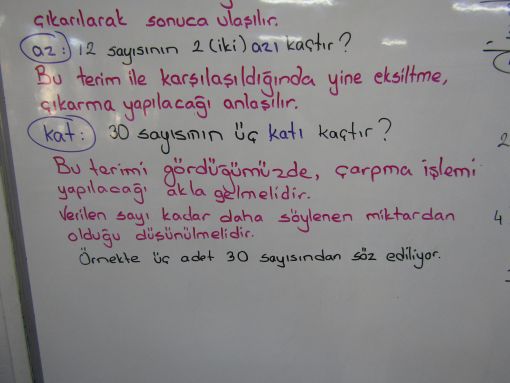 çıkarılarak sonuca ulaşılır.
az: 12 sayısının 2 (iki) azı kaçtır?
Bu terim ile karşılaşıldığında yine eksiltme,
çıkarma yapılacağı anlaşılır.
kat: 30 sayısının üç katı kaçtır?
Bu terimi gördüğümüzde, çarpma işlemi
yapılacağı akla gelmelidir.
Verilen sayı kadar daha söylenen miktardan
olduğu düşünülmelidir.
Örnekte üç adet 30 sayısından söz ediliyor.
2
4